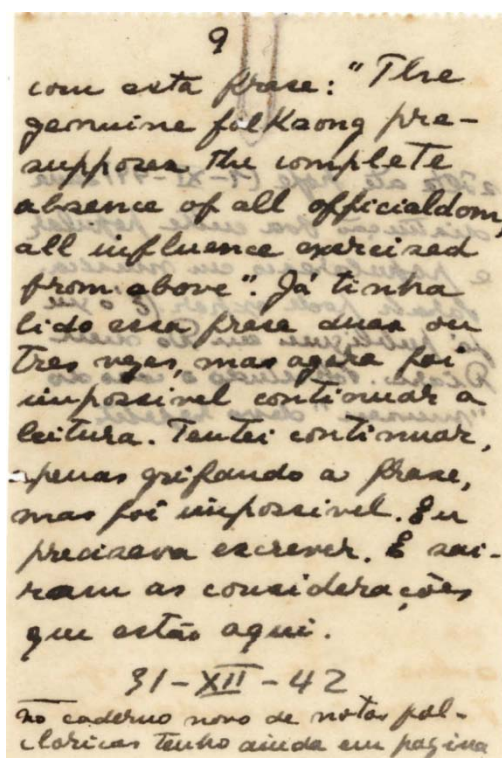 9
com esta frase: "The
genuine folksong pre-
supposes the complete
absence of all officialdom,
all influence exercised
from above". Já tinha
lido essa frase duas ou
tres vezes, mas agora foi
impossivel continuar a
leitura. Tentei continuar,
apenas grifando a frase,
mas foi impossivel. Eu
precisava escrever. E sai-
ram as considerações
que estão aqui.
31-XII-42
No caderno novo de notas fol-
cloricas tenho ainda em pagina